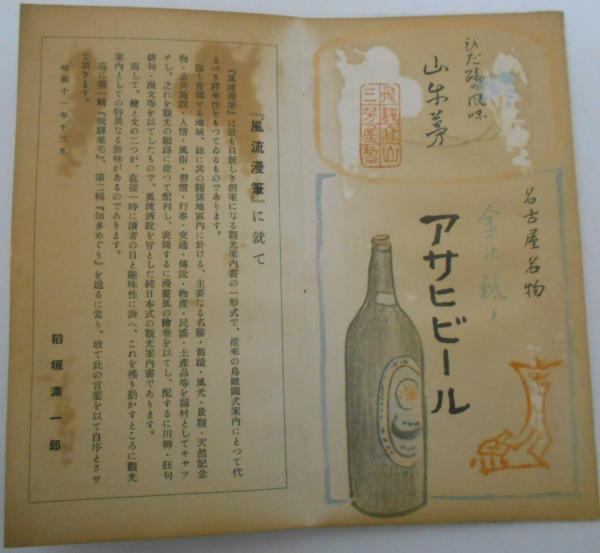 ひだ路の風味
山牛蒡
飛驒高山
三嶋屋製
名古屋名物
金の鯱と
アサヒビール
『風流漫筆』に就て
『風流漫筆』は最も目新しき創案になる觀光案内書の一形式で、從來の鳥瞰圖式案内にとつて代
るべき將來性をもつてゐるものであります。
即ち首題せる地域、並に其の關係地區内に於ける、主要なる名勝・舊蹟・風光・景觀・天然記念
物・公共施設・人情・風俗・習慣・行事・交通・傳說・物產・民謠・土產品等を題材としてキヤツ
チし、之れを觀光の順路に從つて配列し、表現するに漫畫風の繪卷を以てし、配するに川柳・狂句
俳句・漫文等を以てしたもので、風流洒脫を旨とした純日本式の觀光案内書であります。
而して、繪と文の二つが、直接一時に讀者の目と趣味性に訴へ、これを搖り動かすところに觀光
案内としての特異なる新味があるのであります。
茲に第一輯『飛驒栗毛』、第二輯『知多めぐり』を送るに當り、敢て此の言葉を以て自序とさせ
て頂きます。
昭和十一年十二月
稻垣滿一郎